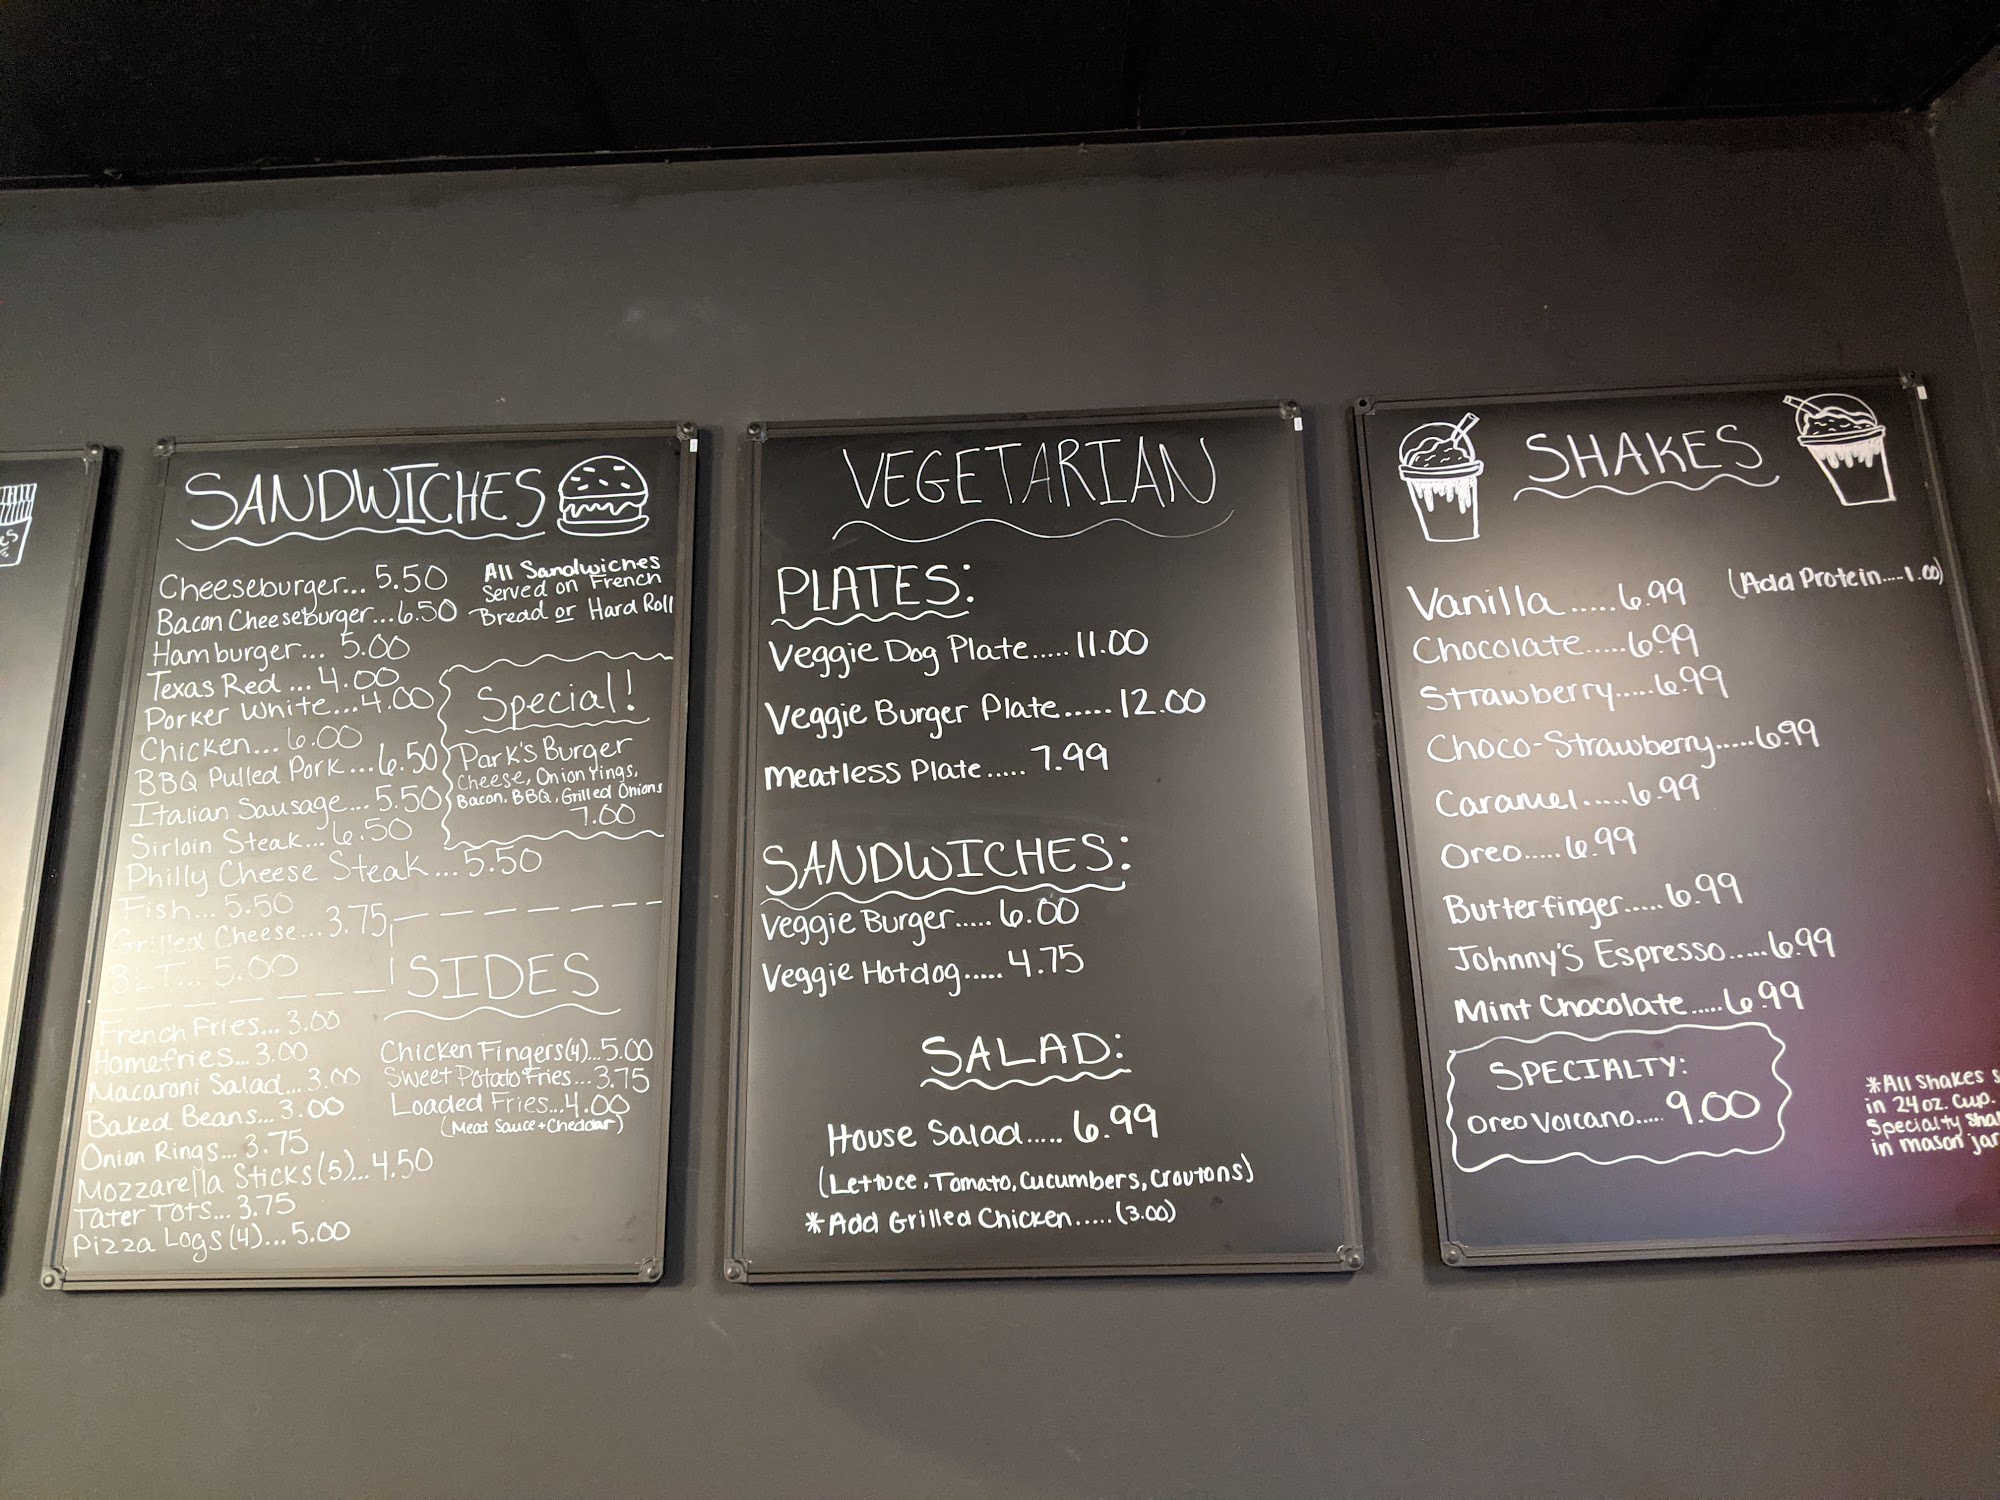 SANDWICHES
Cheeseburger... 5.50
Bacon Cheeseburger...6.50
Hamburger... 5.00
Texas Red ... 4.00
Porker White...4.00
Chicken... 6.00
BBQ Pulled Pork...6.50
Italian Sausage... 5.50
Sirloin Steak... 6.50
Philly Cheese Steak ... 5.50
Fish... 5.50
Grilled Cheese...3.75
BLT... 5.00
All Sandwiches
Served on French
Bread or Hard Roll
Special!
Park's Burger
Cheese, Onion rings,
Bacon, BBQ, Grilled Onions
7.00
SIDES
French Fries... 3.00
Homefries... 3.00
Macaroni Salad... 3.00
Baked Beans... 3.00
Onion Rings... 3.75
Mozzarella Sticks (5)... 4.50
Tater Tots... 3.75
Pizza Logs (4)... 5.00
Chicken Fingers(4)...5.00
Sweet Potato Fries...3.75
Loaded Fries...4.00
(Meat Sauce + Cheddar)
VEGETARIAN
PLATES:
Veggie Dog Plate.....11.00
Veggie Burger Plate.....12.00
Meatless Plate..... 7.99
SANDWICHES:
Veggie Burger..... 6.00
Veggie Hotdog..... 4.75
SALAD:
House Salad..... 6.99
(Lettuce, Tomato, Cucumbers, Croutons)
*Add Grilled Chicken.....(3.00)
SHAKES
Vanilla.....6.99 (Add Protein....1.00)
Chocolate.....6.99
Strawberry.....6.99
Choco-Strawberry.....6.99
Caramel.....6.99
Oreo.....6.99
Butterfinger.....6.99
Johnny's Espresso.....6.99
Mint Chocolate.....6.99
SPECIALTY:
Oreo Volcano..... 9.00
*All Shakes
in 24oz. Cup.
Specialty
in mason jar